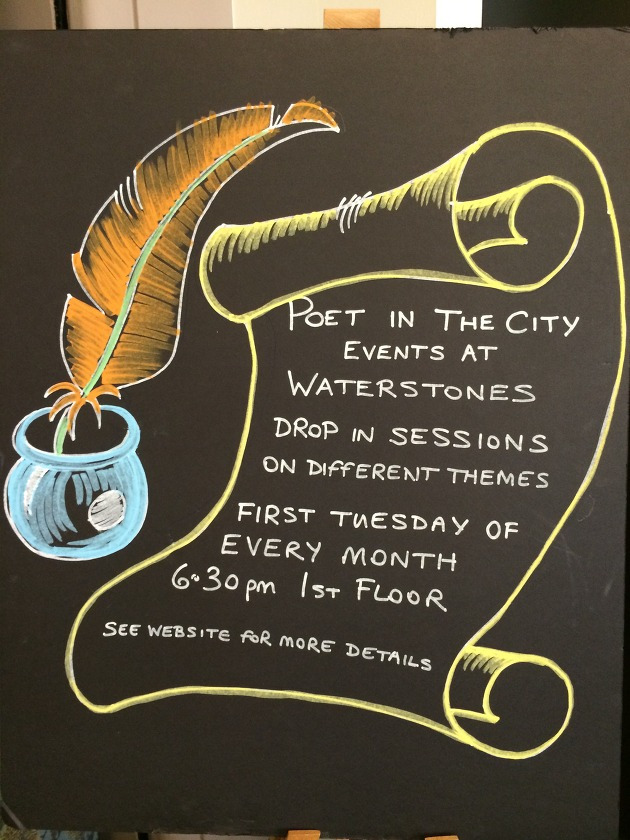 POET IN THE CITY
EVENTS AT
WATERSTONES
DROP IN SESSIONS
ON DIFFERENT THEMES
FIRST TUESDAY OF
EVERY MONTH
6.30pm 1ST FLOOR
SEE WEBSITE FOR MORE DETAILS